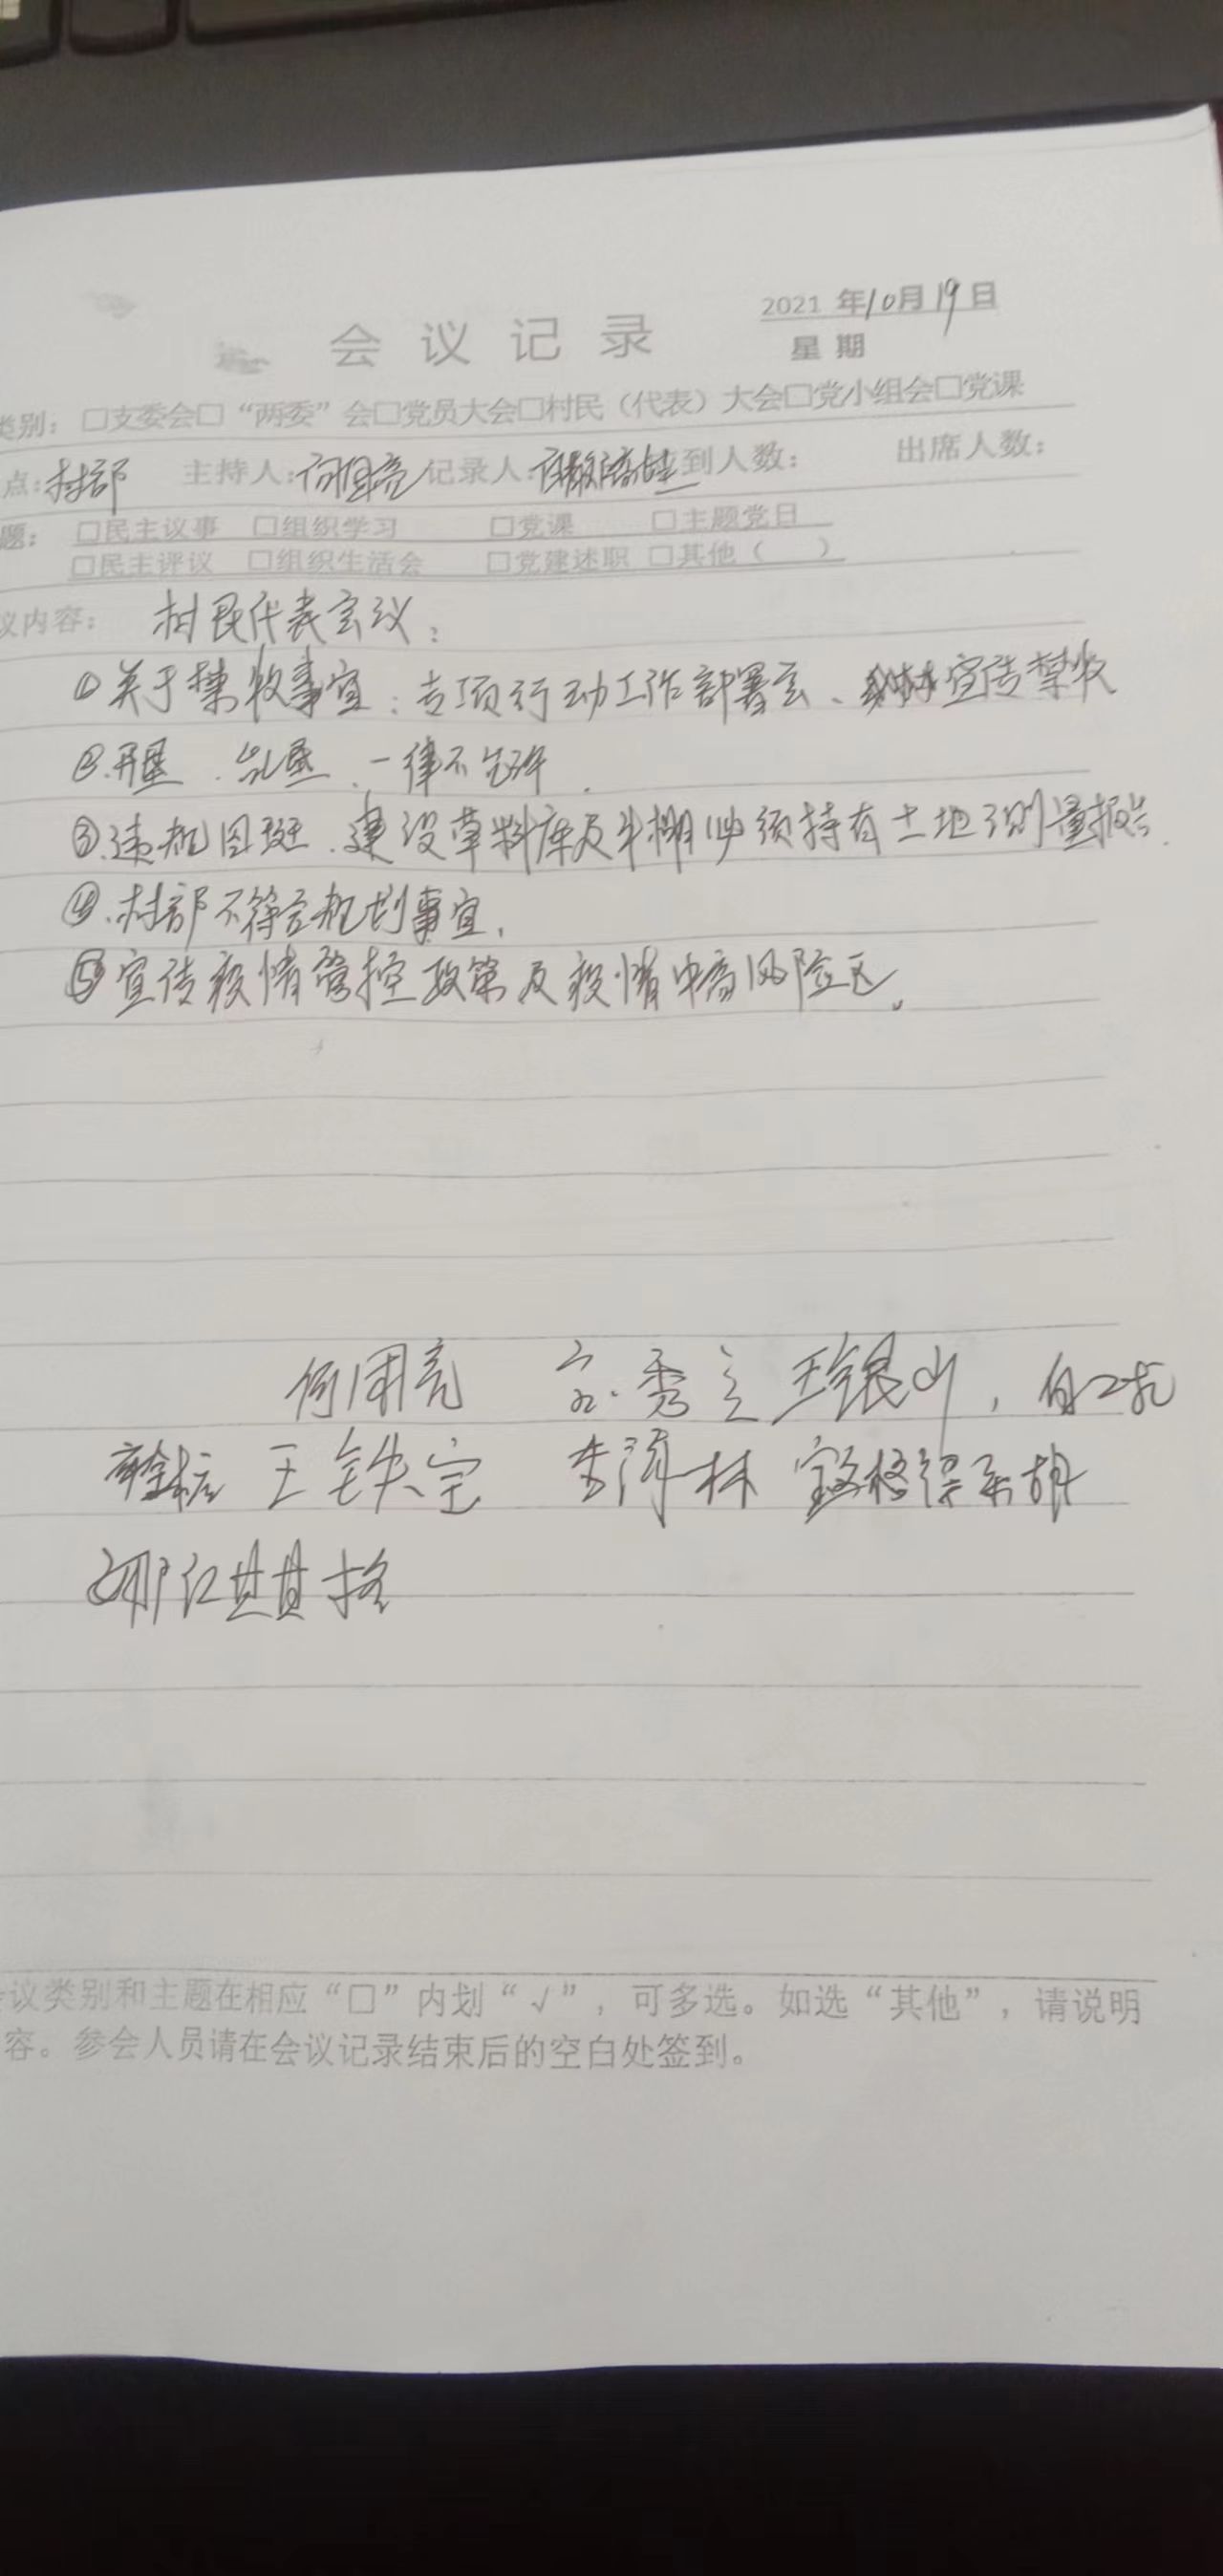 2021 年10月19日
会 议 记 录
星 期
类别：□支委会□“两委”会□党员大会□村民（代表）大会□党小组会□党课
点：村部 主持人： 记录人： 到人数： 出席人数：
题： □民主议事 □组织学习 □党课 □主题党日
□民主评议 □组织生活会 □党建述职 □其他（ ）
议内容： 村民代表会议：
①关于禁牧事宜：专项行动工作部署会、宣传禁牧
②.开垦.乱垦、一律不允许.
③.违规图斑.建设草料库及牛棚必须持有土地测量报告.
④.村部不符合规划事宜.
⑤宣传疫情管控政策及疫情中高风险区。
何国亮 秀 王银山，白
王铁宝 林 格
娜仁其其格
议类别和主题在相应“□”内划“√”，可多选。如选“其他”，请说明
容。参会人员请在会议记录结束后的空白处签到。